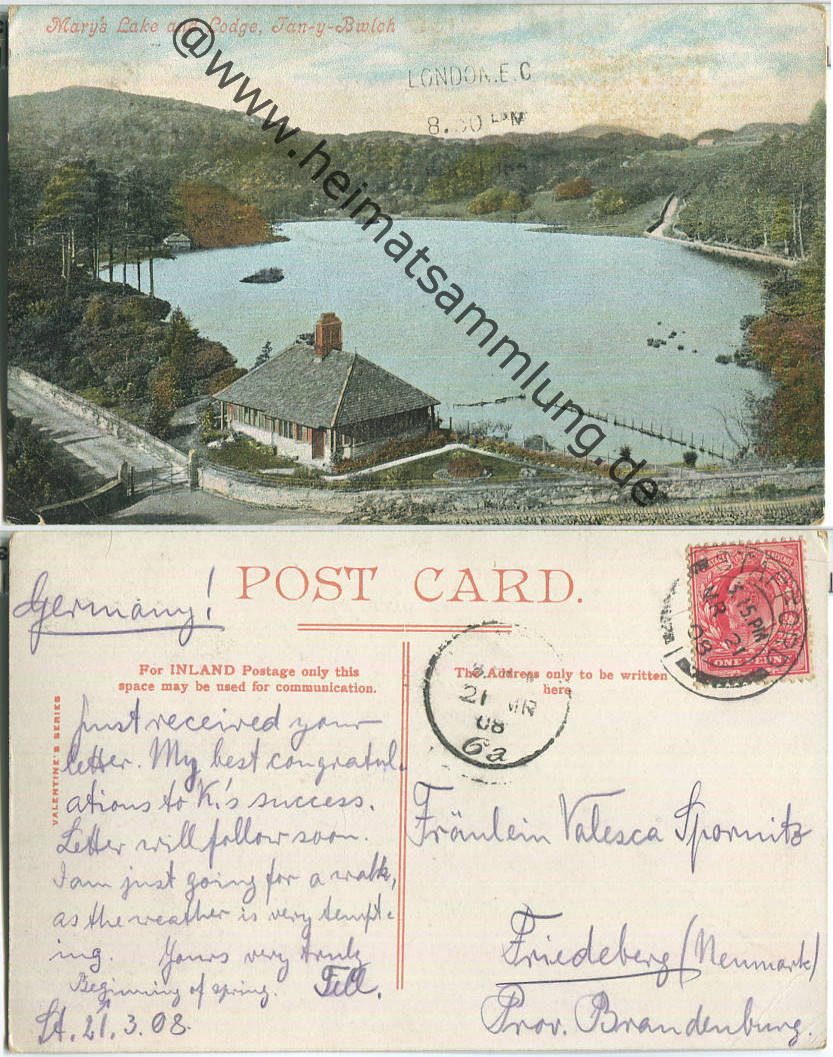 Mary's Lake and Lodge, Tan-y-Bwlch
@www.heimatsammlung.de
LONDON.E.C
8.
POST CARD.
Germany!
For INLAND Postage only this
space may be used for communication.
The Address only to be written
here
VALENTINE'S SERIES
21 MR
08
6a
STAFFORD
3.15 PM
MR 21
08
ONE PENNY
Just received your
letter. My best congratul-
ations to K.'s success.
Letter will follow soon.
I am just going for a walk,
as the weather is very tempt-
ing. Yours very truly
Beginning of spring. Fell.
St. 21. 3. 08.
Fräulein Valesca Spornitz
Friedeberg (Neumark)
Prov. Brandenburg.